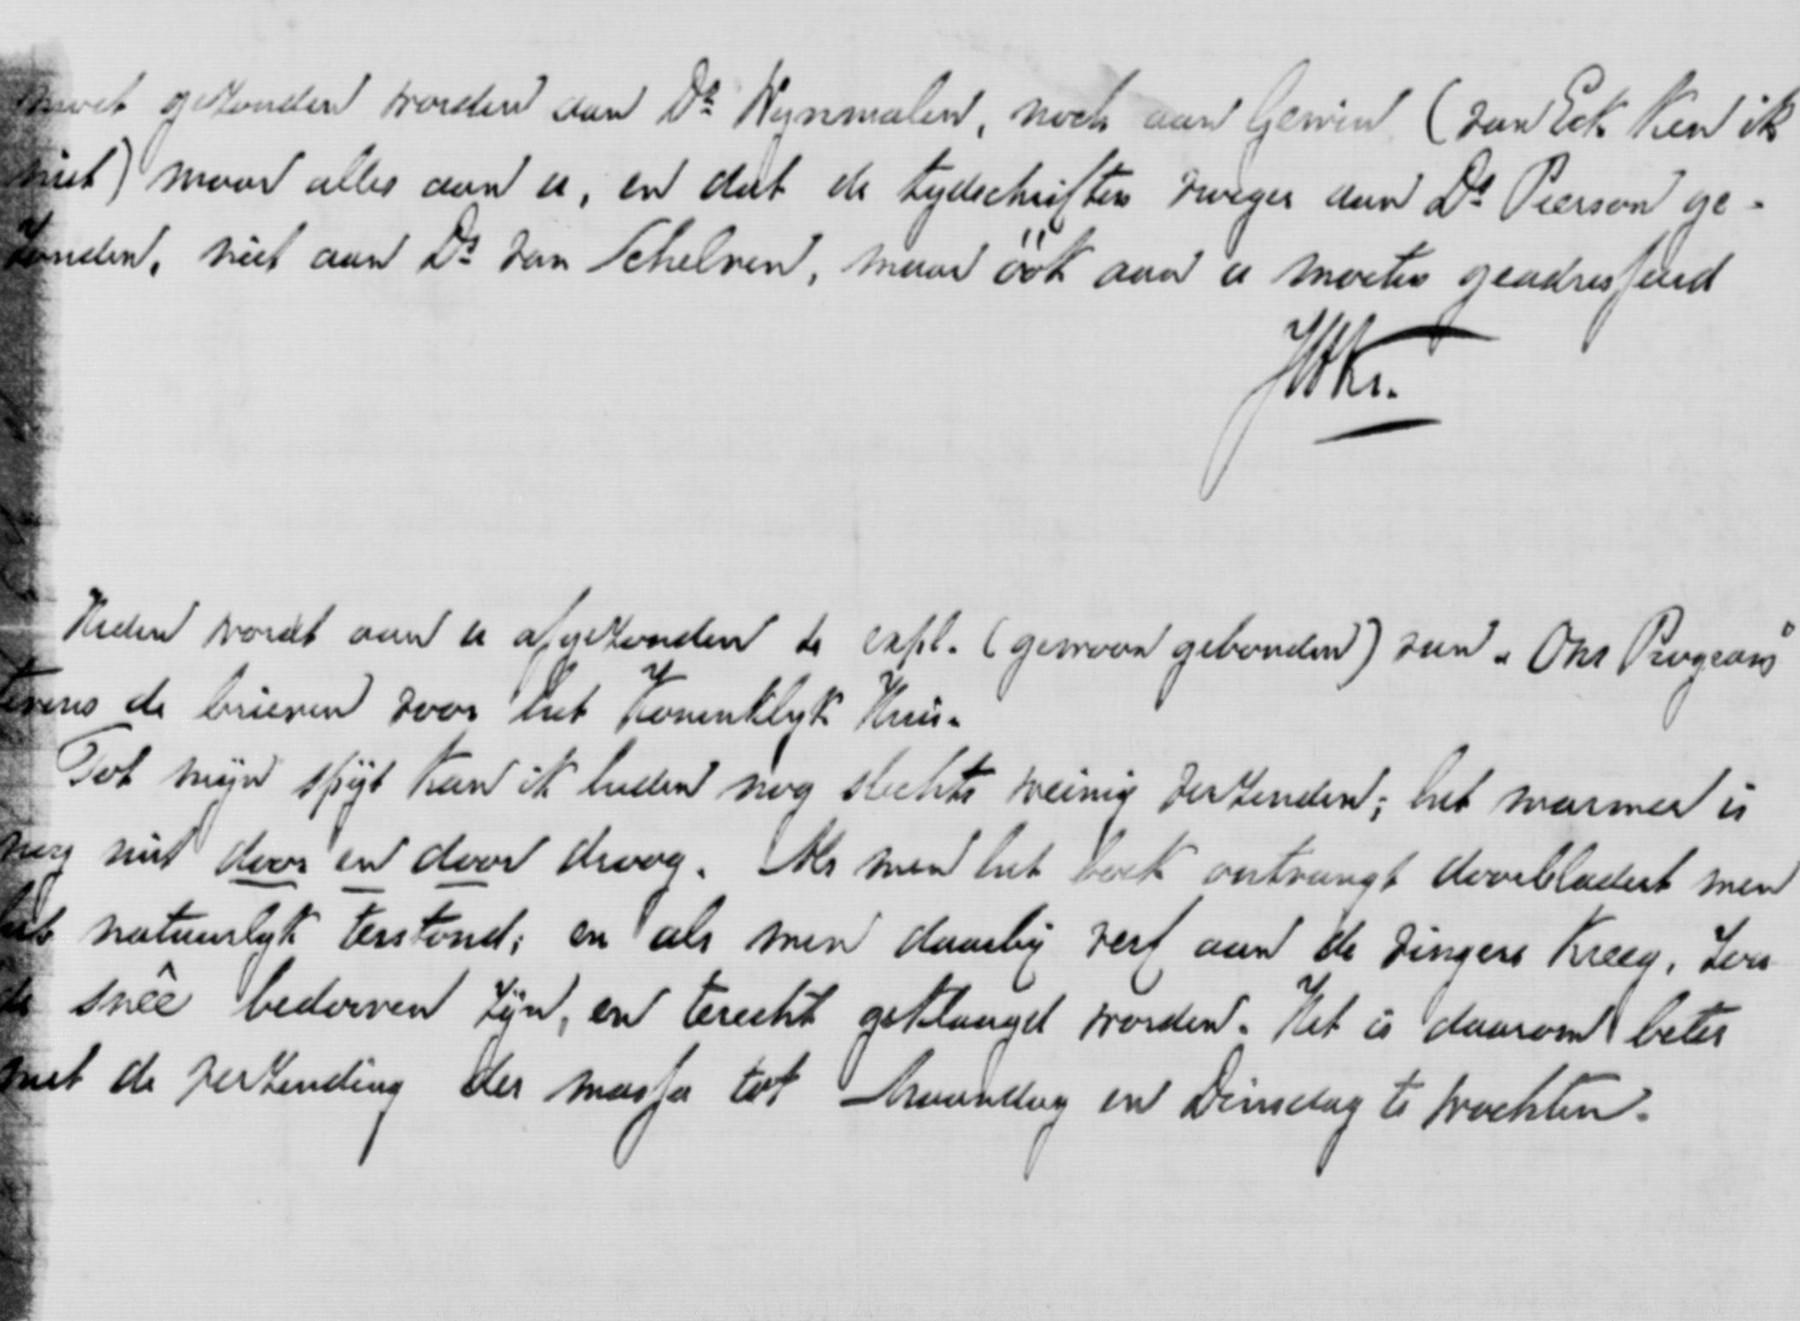 moet gezonden worden aan Ds Wijnmalen, noch aan Gewin (van Eck ken ik
niet) maar alles aan u, en dat de tydschriften vroeger aan Ds Pierson ge-
zonden, niet aan Ds van Schelven, maar óók aan u moeten geadresseerd
JHKr.
Heden wordt aan u afgezonden de expl. (gewoon gebonden) van „Ons Program"
tevens de brieven voor het Koninklyk Huis.
Tot mijn spijt kan ik heden nog slechts weinig verzenden; het marmer is
nog niet door en door droog. Als men het boek ontvangt doorbladert men
het natuurlyk terstond; en als men daarbij verf aan de vingers kreeg, zou
de snêe bedorven zijn, en terecht geklaagd worden. Het is daarom beter
met de verzending der massa tot Maandag en Dinsdag te wachten.